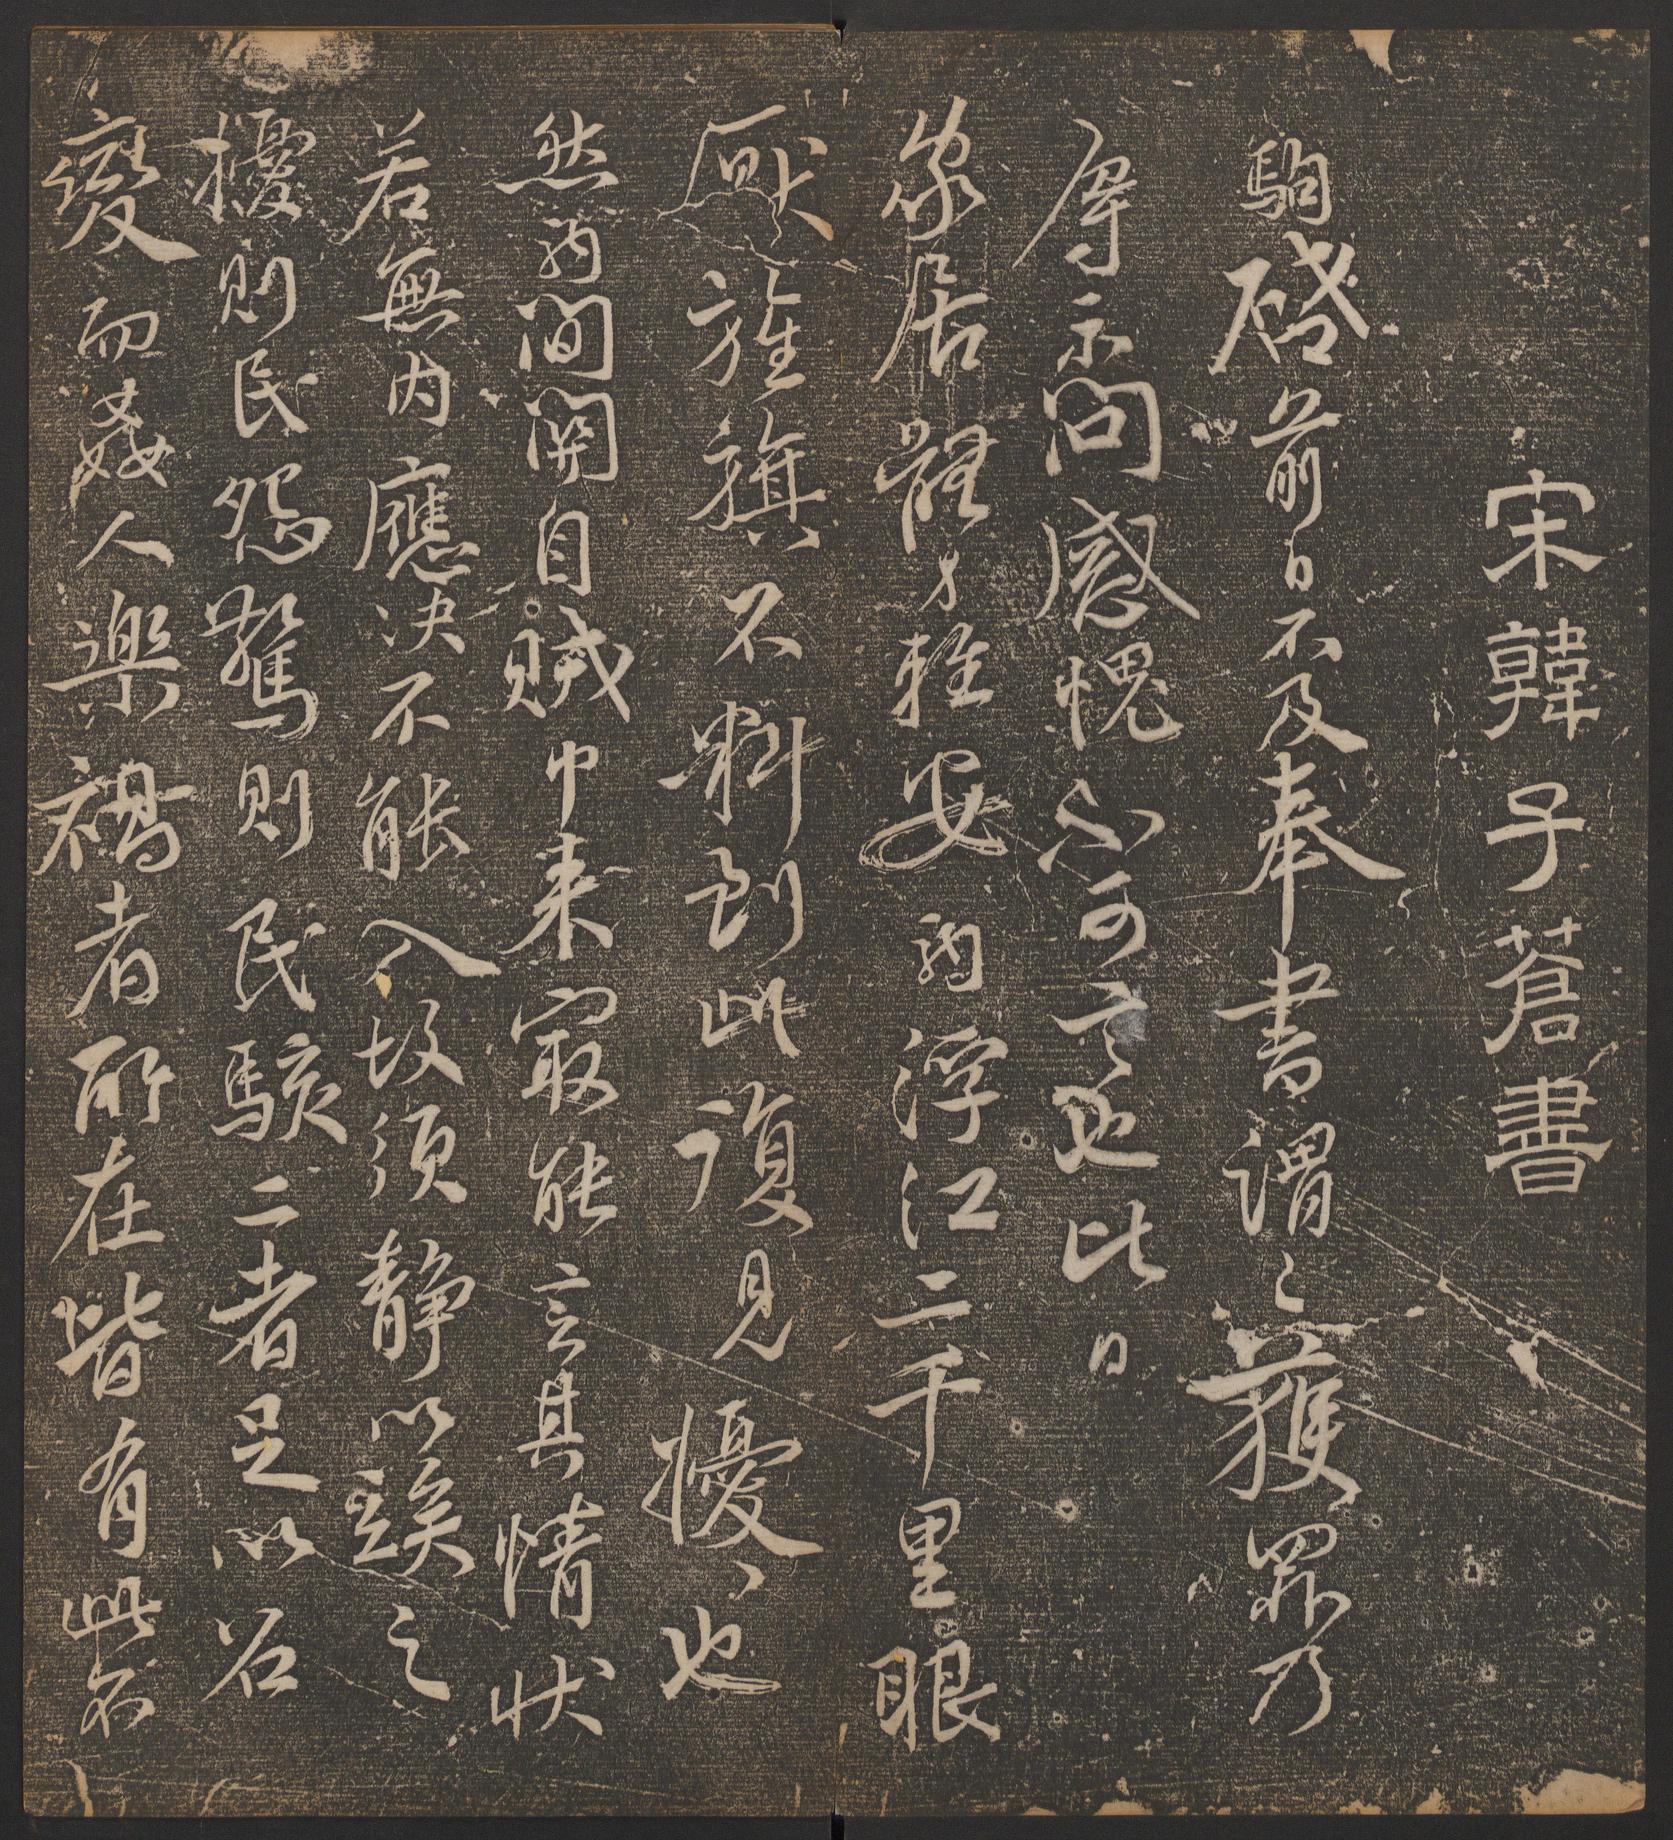 宋韓子蒼書
駒啓前日不及奉書謂之獲罪乃
辱示問感愧不可言也比日
家居體力輕安駒浮江二千里眼
厭旌旗不料到此復見擾擾也
然駒間關自賊中來最能言其情狀
若無内應決不能入故須靜以鎮之
擾則民怨驚則民駭二者足以召
變而姦人樂禍者所在皆有此不